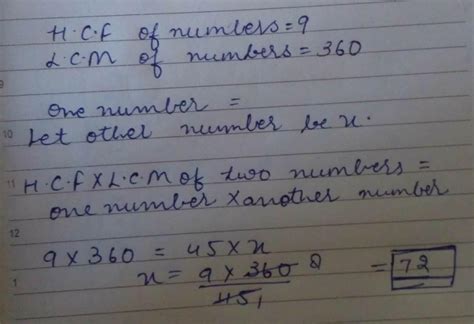 H.C.F of numbers = 9
L.C.M of numbers = 360
9
one number =
10 Let other number be x.
11 H.C.F X L.C.M of two numbers =
one number X another number
12
9 X 360 = 45 X x
1 x = 9 X 360 8 / 45 1 = 72